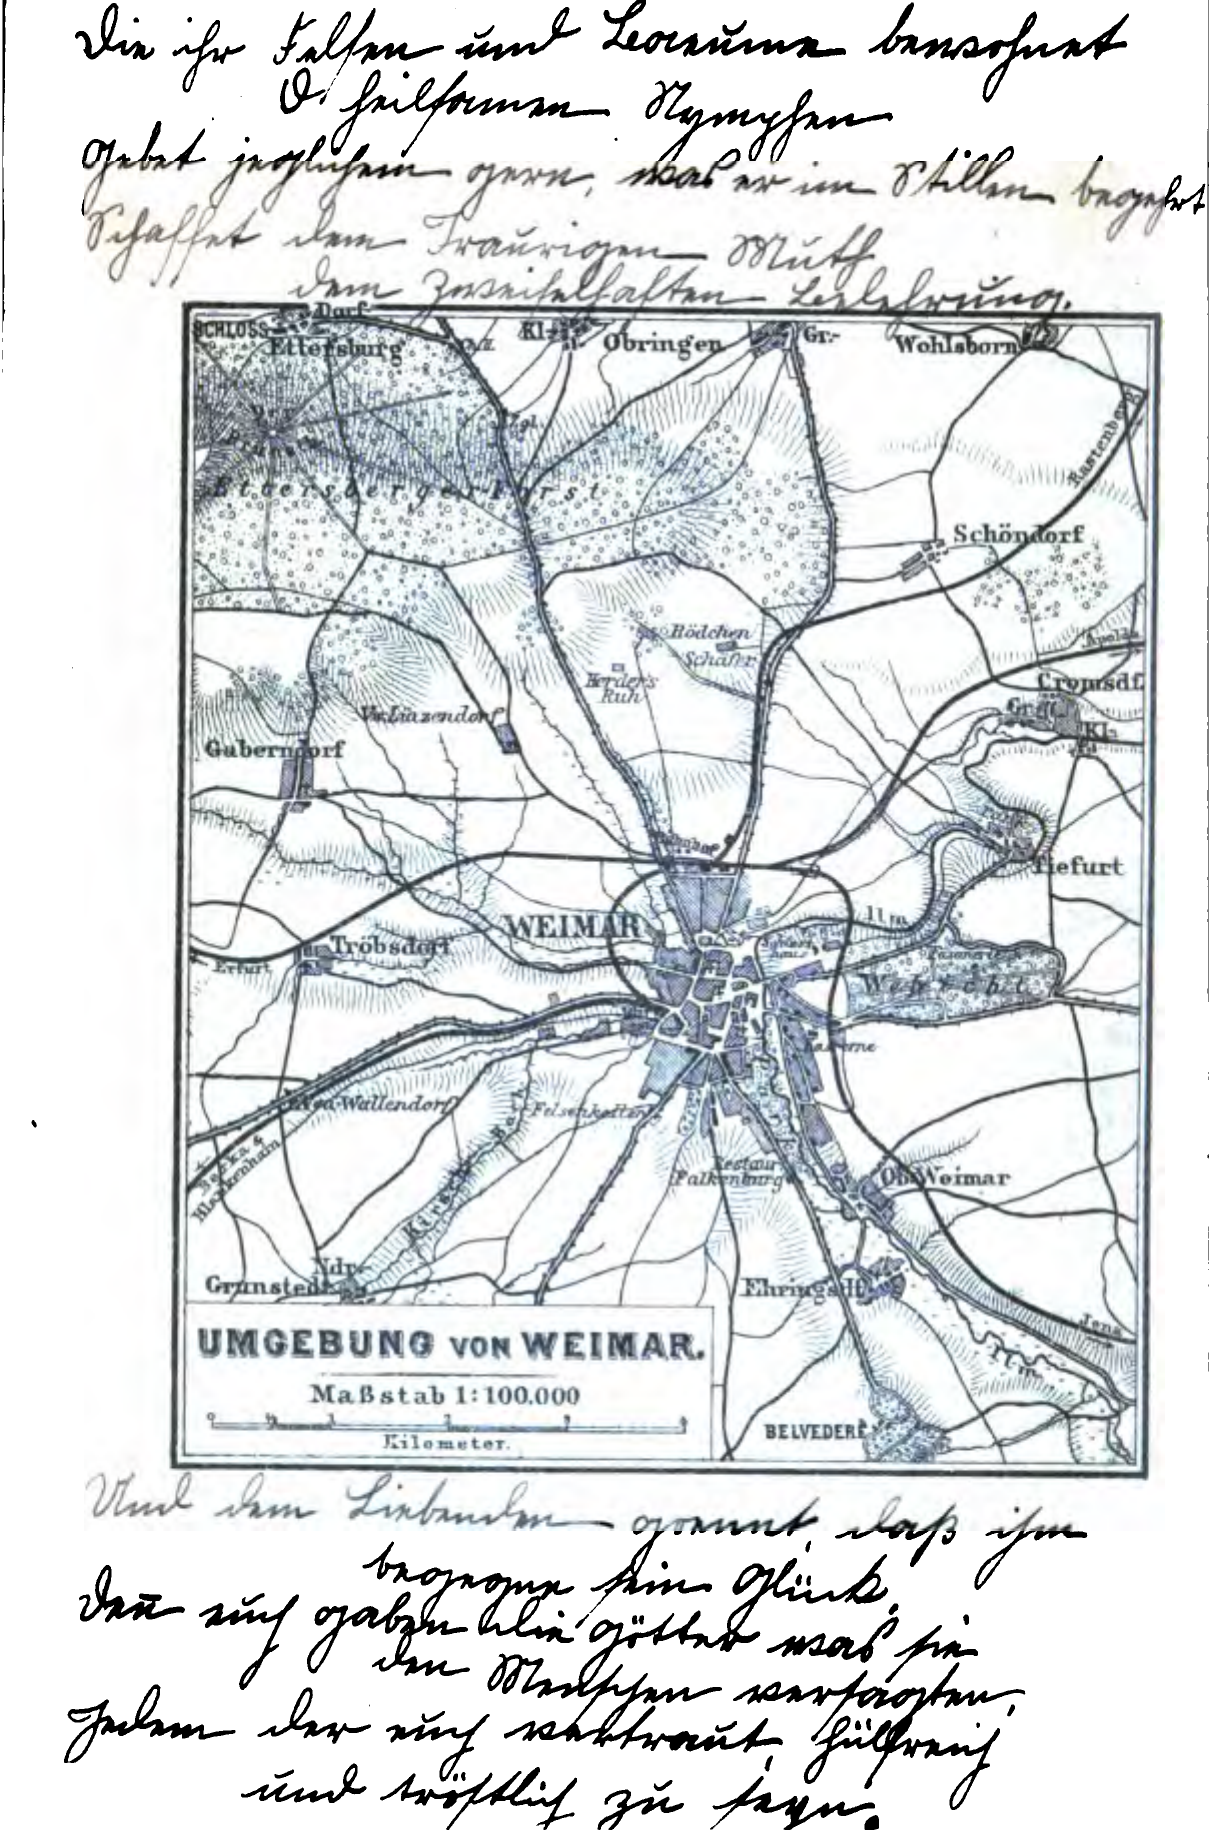 Die ihr Felsen und Baeume bewohnet
O heilsamen Nymphen
Gebet jeglichem gern, was er im Stillen begehrt
Schaffet dem Traurigen Muth
dem Zweifelhaften Belehrung.
SCHLOSS Dorf
Ettersburg
Kl-
Obringen
Gr.-
Wohlsborn
Rastenberg
Ettersberger Forst
Schöndorf
Rödchen
Schäfer
Herder's
Ruh
Apolda
Cromsdf.
Gr.
Kl-
Vw. Lüzendorf
Gaberndorf
Bahnhof
Tiefurt
WEIMAR
Ilm
Tröbsdorf
Erfurt
Schiess
haus
Fasanerie
Webicht
Kaserne
Wallendorf
Felsenkeller
Kirsch Bach
Park
Berka &
Blankenhain
Restaur.
Falkenburg
Ob. Weimar
Ndr.
Grunstedt
Ehringsdf.
Jena
Ilm
BELVEDERE
UMGEBUNG VON WEIMAR.
Maßstab 1:100.000
Kilometer.
Und dem Liebenden goennt, daß ihm
begegne sein Glück,
Den̄ euch gaben die Götter was sie
den Menschen versagten,
Jedem der euch vertraut, hülfreich
und tröstlich zu seyn.